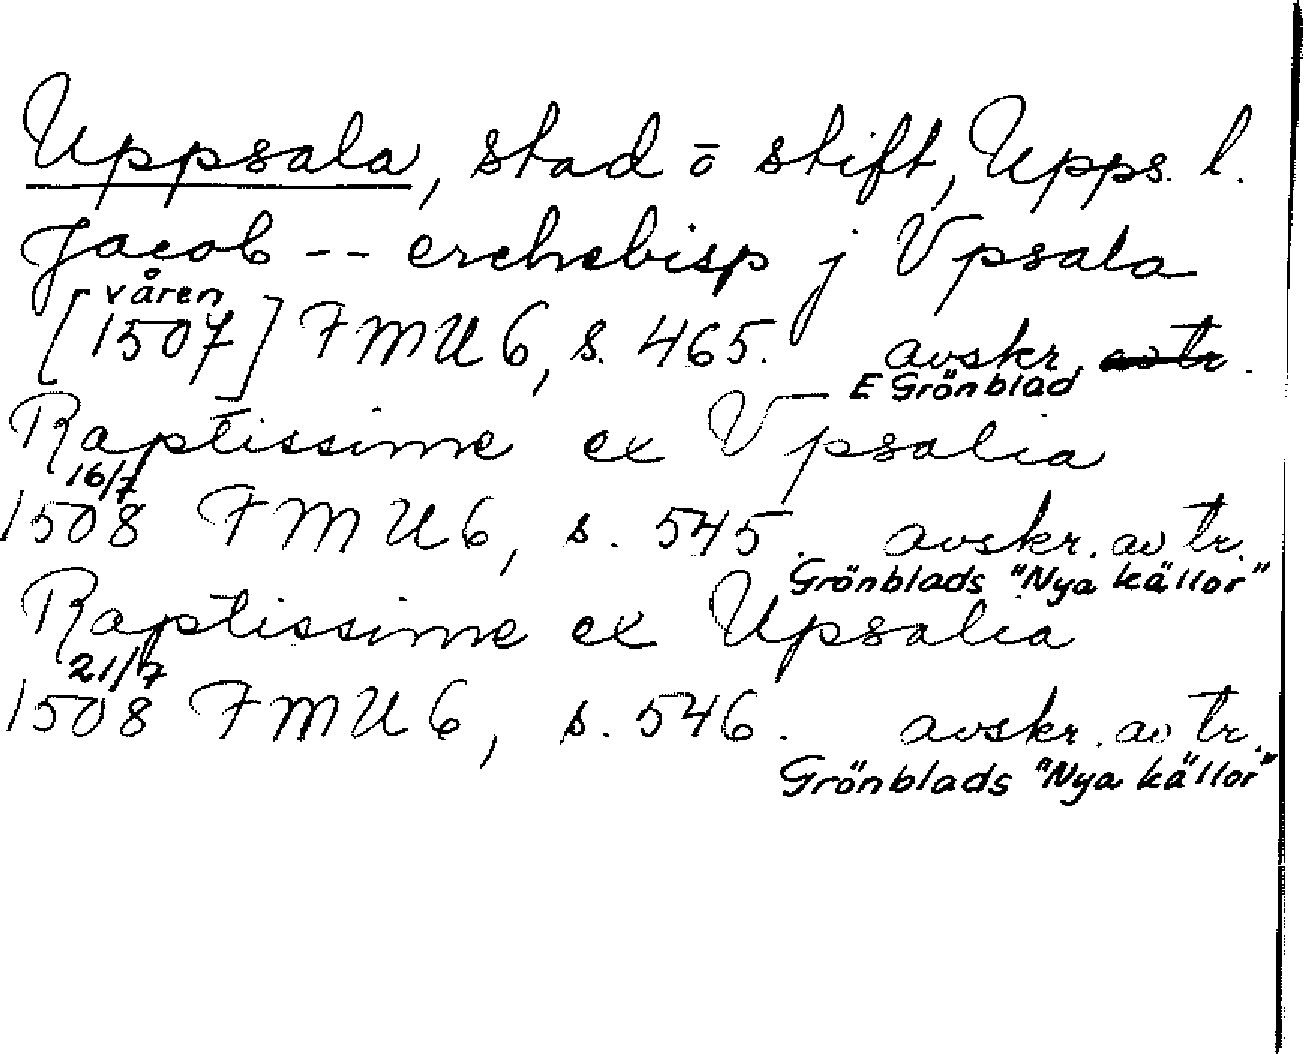 Uppsala, stad ō stift, Upps. l.
Jacob -- erchebisp j Vpsala
våren
[1507] FMU 6, s. 465. avskr. av tr.
E Grönblad
Raptissime ex Vpsalia
16/7
1508 FMU 6, s. 545. avskr. av tr.
Grönblads "Nya källor"
Raptissime ex Upsalia
21/7
1508 FMU 6, s. 546. avskr. av tr.
Grönblads "Nya källor"